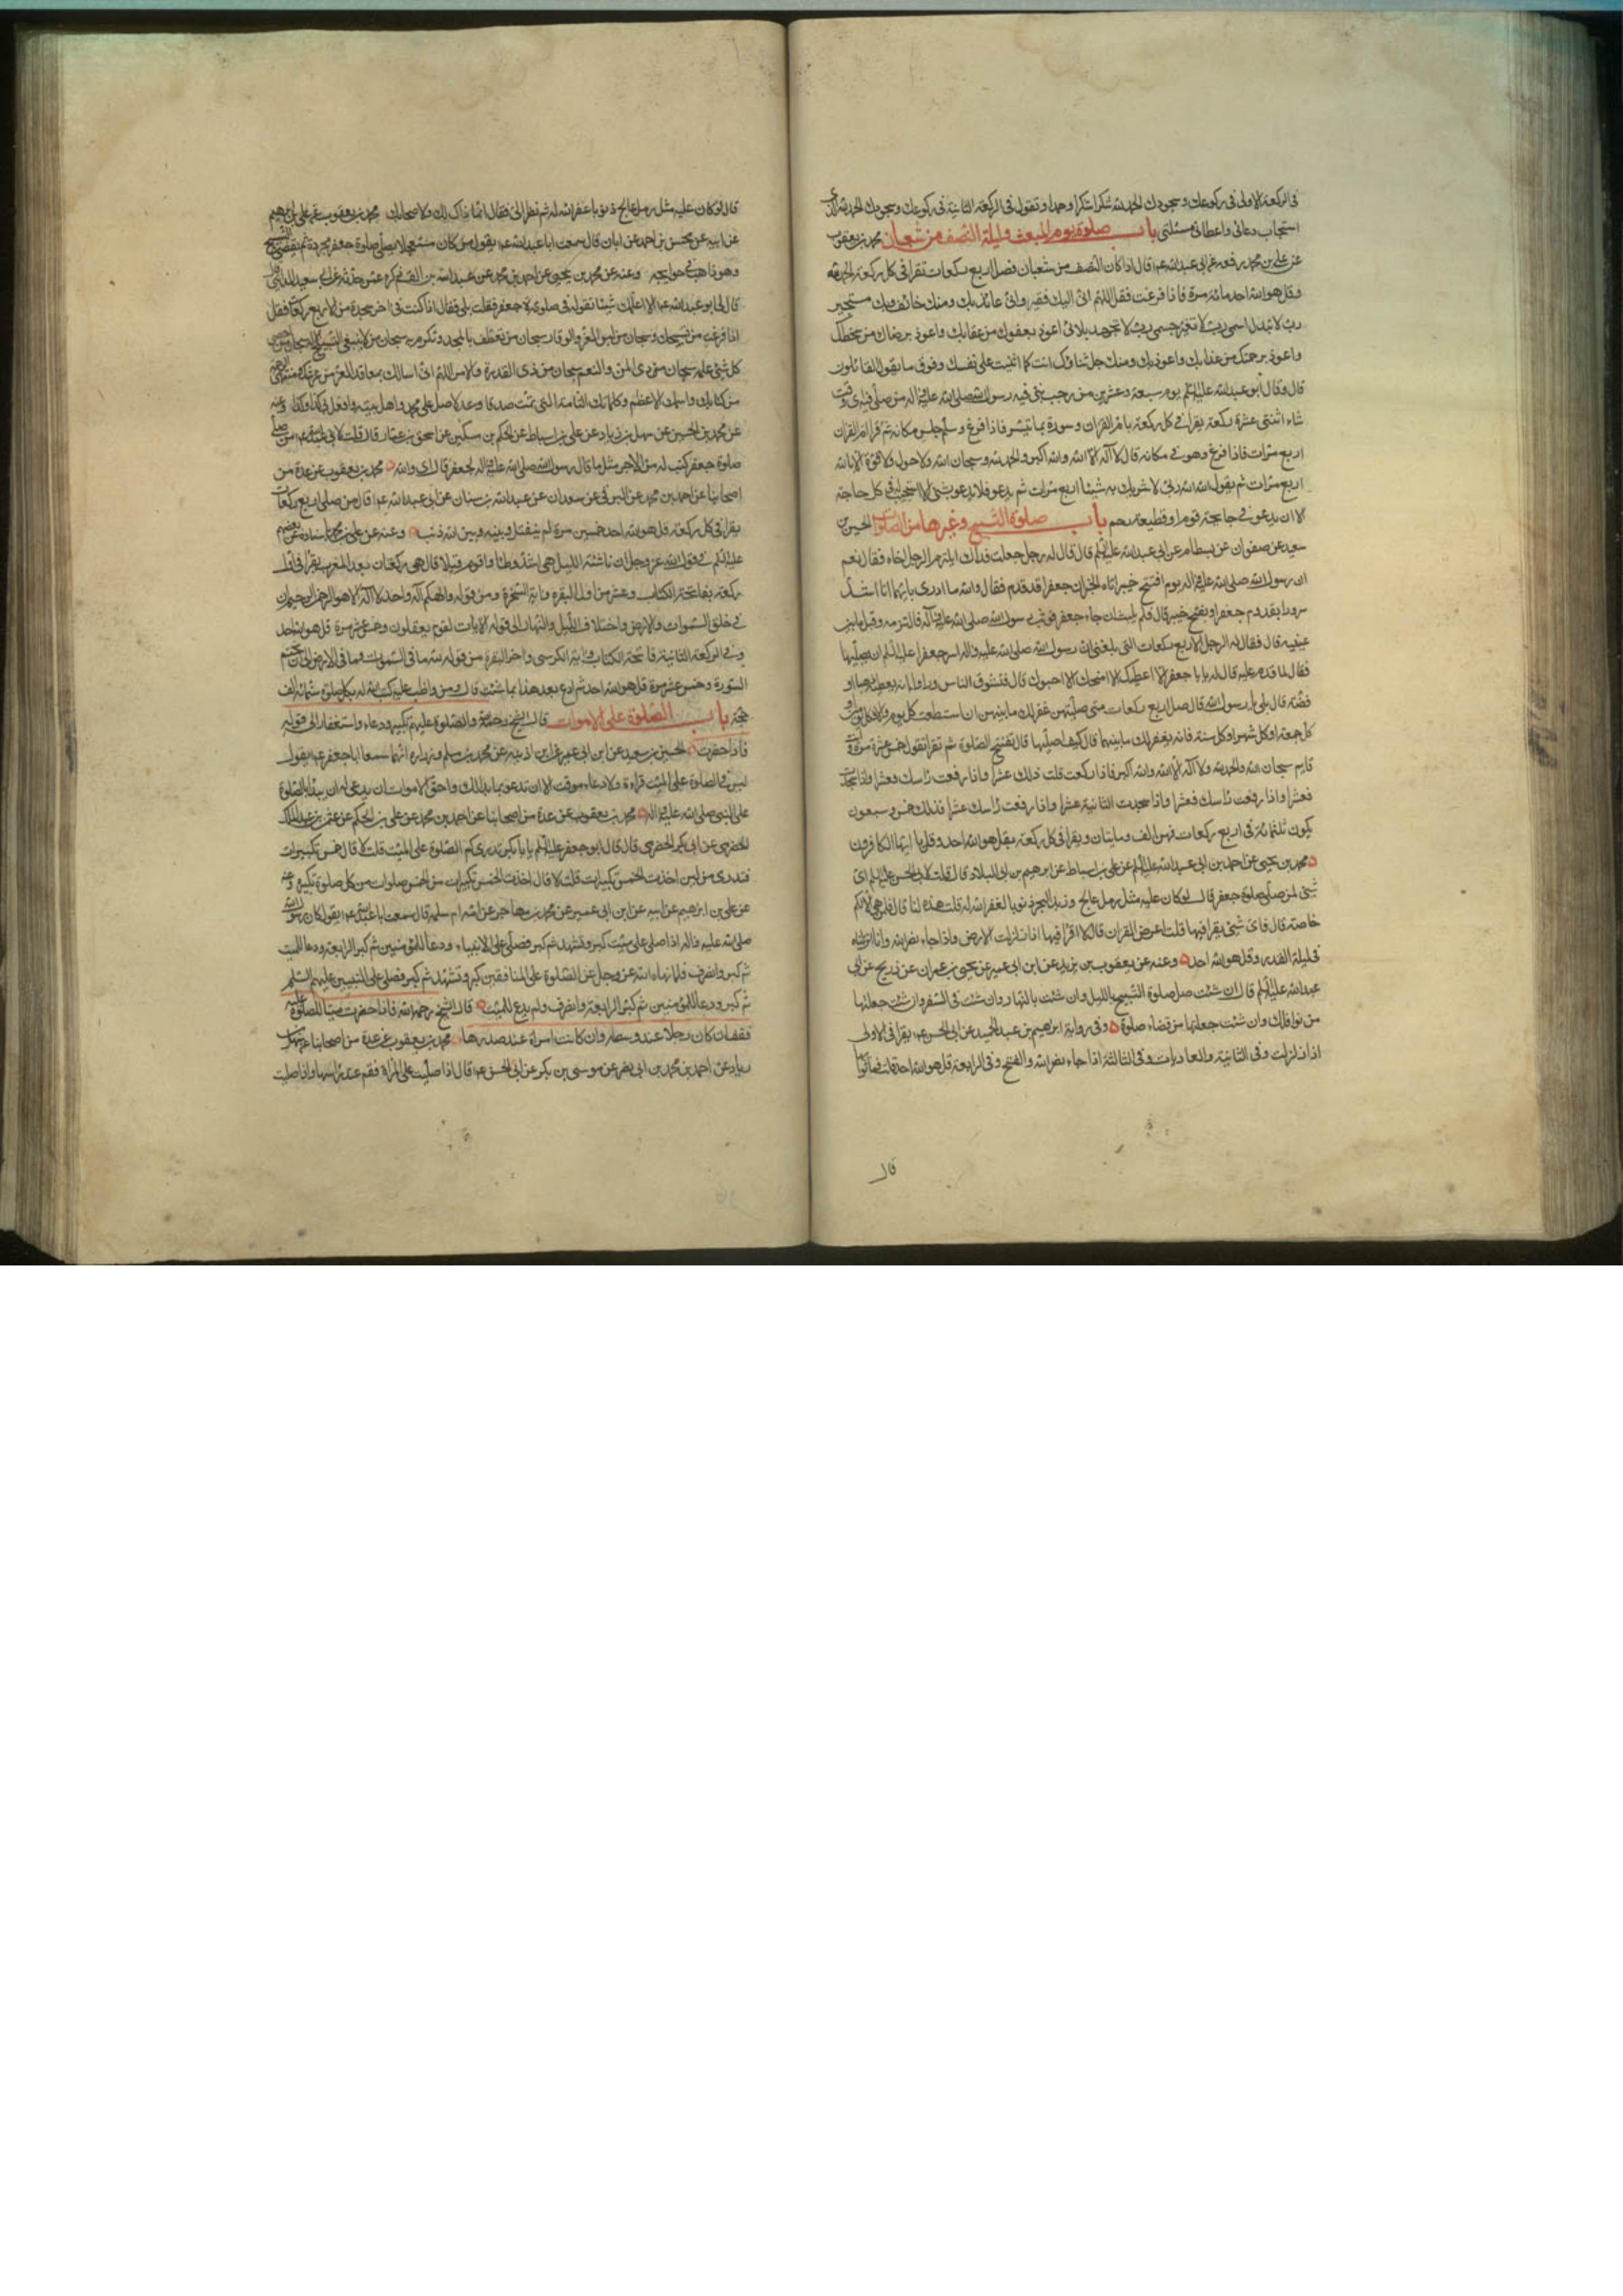 فى الركعة الاولى فى ركوعك وسجودك الحمد لله شكرا شكرا وحمدا وتقول فى الركعة الثانية فى ركوعك وسجودك الحمد لله الذى
استجاب دعائى واعطانى مسئلتى باب صلوة يوم المبعث وليلة النصف من شعبان محمد بن يعقوب
عن على بن محمد رفعه عن ابى عبد الله ع قال اذا كان النصف من شعبان فصل اربع ركعات تقرا فى كل ركعة الحمد مرة
وقل هو الله احد مائة مرة فاذا فرغت فقل اللهم انى اليك فقير وانى عائذ بك ومنك خائف وبك مستجير
رب لا تبدل اسمى رب لا تغير جسمى رب لا تجهد بلائى اعوذ بعفوك من عقابك واعوذ برضاك من سخطك
واعوذ برحمتك من عذابك واعوذ بك ومنك جل ثناؤك انت كما اثنيت على نفسك وفوق ما يقول القائلون
قال وقال ابو عبد الله عليه السلم يوم سبعة وعشرين من رجب نبئ فيه رسول الله صلى الله عليه واله من صلى فيه اى وقت
شاء اثنتى عشرة ركعة يقرا فى كل ركعة بام القران وسورة بما تيسر فاذا فرغ وسلم جلس مكانه ثم قرا ام القران
اربع مرات فاذا فرغ وهو فى مكانه قال لا اله الا الله والله اكبر والحمد لله وسبحان الله ولا حول ولا قوة الا بالله
اربع مرات ثم يقول الله الله ربى لا شريك به شيئا اربع مرات ثم يدعو فلا يدعو بشئ الا استجيب له فى كل حاجة
الا ان يدعو فى جايحة قوم او قطيعة رحم باب صلوة التسبيح وغيرها من الصلوات الحسين بن
سعيد عن صفوان عن بسطام عن ابى عبد الله عليه السلم قال قال له رجل جعلت فداك ايلتزم الرجل اخاه فقال نعم
ان رسول الله صلى الله عليه واله يوم افتتح خيبر اتاه الخبر ان جعفرا قد قدم فقال والله ما ادرى بايهما انا اشد
سرورا بقدوم جعفر او بفتح خيبر قال فلم يلبث ان جاء جعفر فوثب رسول الله صلى الله عليه واله فالتزمه وقبل ما بين
عينيه قال فقال له الرجل الاربع ركعات التى بلغنى ان رسول الله صلى الله عليه واله امر جعفرا عليه السلم ان يصليها
فقال لما قدم عليه قال له يا جعفر الا اعطيك الا امنحك الا احبوك قال فتشوف الناس وراوا انه يعطيه ذهبا او
فضة قال بلى يا رسول الله قال صل اربع ركعات متى صليتهن غفر لك ما بينهن ان استطعت كل يوم والا فكل يومين او
كل جمعة او كل شهر او كل سنة فانه يغفر لك ما بينهما قال كيف اصليها قال تفتتح الصلوة ثم تقرا تقول خمس عشرة مرة وانت
قايم سبحان الله والحمد لله ولا اله الا الله والله اكبر فاذا ركعت قلت ذلك عشرا واذا رفعت راسك فعشرا واذا سجدت
فعشرا واذا رفعت راسك فعشرا واذا سجدت الثانية عشرا واذا رفعت راسك عشرا فذلك خمس وسبعون
يكون ثلثمائة فى اربع ركعات فهن الف ومايتان ويقرا فى كل ركعة بقل هو الله احد وقل يا ايها الكافرون
محمد بن يحيى عن احمد بن ابى عبد الله عليه السلم عن على بن اسباط عن ابرهيم بن ابى البلاد قال قلت لابى الحسن عليه السلم اى
شئ لمن صلى صلوة جعفر قال لو كان عليه مثل رمل عالج وزبد البحر ذنوبا لغفر الله له قلت هذه لنا قال فلمن هى الا لكم
خاصة قال فاى شئ يقرا فيها قلت اعرض القران قال لا اقرا فيها اذا زلزلت الارض واذا جاء نصر الله وانا انزلناه
فى ليلة القدر وقل هو الله احد وعنه عن يعقوب بن يزيد عن ابن ابى عمير عن يحيى بن عمران عن ذريح عن ابى
عبد الله عليه السلم قال ان شئت صل صلوة التسبيح بالليل وان شئت بالنهار وان شئت فى السفر وان شئت جعلتها
من نوافلك وان شئت جعلتها من قضاء صلوة وفى رواية ابرهيم بن عبد الحميد عن ابى الحسن ع يقرا فى الاولى
اذا زلزلت وفى الثانية والعاديات وفى الثالثة اذا جاء نصر الله والفتح وفى الرابعة قل هو الله احد قلت فما ثوابها
قال
قال لو كان عليه مثل رمل عالج ذنوبا غفر الله له ثم نظر الى فقال انما ذاك لك ولاصحابك محمد بن يعقوب عن على بن ابرهيم
عن ابيه عن محسن بن احمد عن ابان قال سمعت ابا عبد الله ع يقول من كان مستعجلا يصلى صلوة جعفر مجردة ثم يقضى التسبيح
وهو ذاهب فى حوايجه وعنه عن محمد بن يحيى عن احمد بن محمد عن عبد الله بن القسم ذكره عمن حدثه عن ابى سعيد المداينى قال
قال لى ابو عبد الله ع الا اعلمك شيئا تقوله فى صلوة جعفر فقلت بلى فقال اذا كنت فى اخر سجدة من الاربع ركعات فقل
اذا فرغت من تسبيحك سبحان من لبس العز والوقار سبحان من تعطف بالمجد وتكرم به سبحان من لا ينبغى التسبيح الا له سبحان من احصى
كل شئ علمه سبحان من ذى المن والنعم سبحان من ذى القدرة والامر اللهم انى اسالك بمعاقد العز من عرشك ومنتهى الرحمة
من كتابك واسمك الاعظم وكلماتك التامة التى تمت صدقا وعدلا صل على محمد واهل بيته وافعل بى كذا وكذا وعنه
عن محمد بن الحسين عن سهل بن زياد عن على بن اسباط عن الحكم بن مسكين عن اسحق بن عمار قال قلت لابى عبد الله ع من صلى
صلوة جعفر كتب له من الاجر مثل ما قال رسول الله صلى الله عليه واله لجعفر قال اى والله محمد بن يعقوب عن عدة من
اصحابنا عن احمد بن محمد عن البرقى عن سعدان عن عبد الله بن سنان عن ابى عبد الله ع قال من صلى اربع ركعات
يقرا فى كل ركعة قل هو الله احد خمسين مرة لم ينفتل وبينه وبين الله ذنب وعنه عن على بن محمد باسناده عن بعضهم
عليه السلم فى قول الله عز وجل ان ناشئة الليل هى اشد وطئا واقوم قيلا قال هى ركعتان بعد المغرب يقرا فى اول
ركعة بفاتحة الكتاب وعشر من اول البقرة واية السخرة ومن قوله والهكم اله واحد لا اله الا هو الرحمن الرحيم ان
فى خلق السموات والارض واختلاف الليل والنهار الى قوله لايات لقوم يعقلون وخمس عشرة مرة قل هو الله احد
وفى الركعة الثانية فاتحة الكتاب واية الكرسى واخر البقرة من قوله لله ما فى السموات وما فى الارض الى ان تختم
السورة وخمس عشرة مرة قل هو الله احد ثم ادع بعد هذا بما شئت قال ومن واظب عليه كتب الله له بكل صلوة ستمائة الف
حجة باب الصلوة على الاموات قال الشيخ رحمه الله والصلوة عليهم تكبير ودعاء واستغفار الى قوله
فاذا حضرت الحسين بن سعيد عن ابن ابى عمير عن ابن اذينة عن محمد بن مسلم وزرارة انهما سمعا ابا جعفر ع يقول
ليس فى الصلوة على الميت قراءة ولا دعاء موقت الا ان تدعو بما بدا لك واحق الاموات ان يدعى له ان يبدا بالصلوة
على النبى صلى الله عليه واله محمد بن يعقوب عن عدة من اصحابنا عن احمد بن محمد عن على بن الحكم عن عثمن بن عبد الملك
الحضرمى عن ابى بكر الحضرمى قال قال ابو جعفر عليه السلم يا با بكر تدرى كم الصلوة على الميت قلت لا قال خمس تكبيرات
فتدرى من اين اخذت الخمس تكبيرات قلت لا قال اخذت الخمس تكبيرات من الخمس صلوات من كل صلوة تكبيرة وعنه
عن على بن ابرهيم عن ابيه عن ابن ابى عمير عن محمد بن مهاجر عن امه ام سلمة قال سمعت ابا عبد الله ع يقول كان رسول الله
صلى الله عليه واله اذا صلى على ميت كبر وتشهد ثم كبر فصلى على الانبياء ودعا للمؤمنين ثم كبر الرابعة ودعا للميت
ثم كبر وانصرف فلما نهاه الله عز وجل عن الصلوة على المنافقين كبر وتشهد ثم كبر فصلى على النبيين عليهم السلم
ثم كبر ودعا للمؤمنين ثم كبر الرابعة وانصرف ولم يدع للميت قال الشيخ رحمه الله فاذا حضرت ميتا للصلوة عليه
فقف ان كان رجلا عند وسطه وان كانت امراة عند صدرها محمد بن يعقوب عن عدة من اصحابنا عن سهل بن
زياد عن احمد بن محمد بن ابى نصر عن موسى بن بكر عن ابى الحسن ع قال اذا صليت على المراة فقم عند راسها واذا صليت